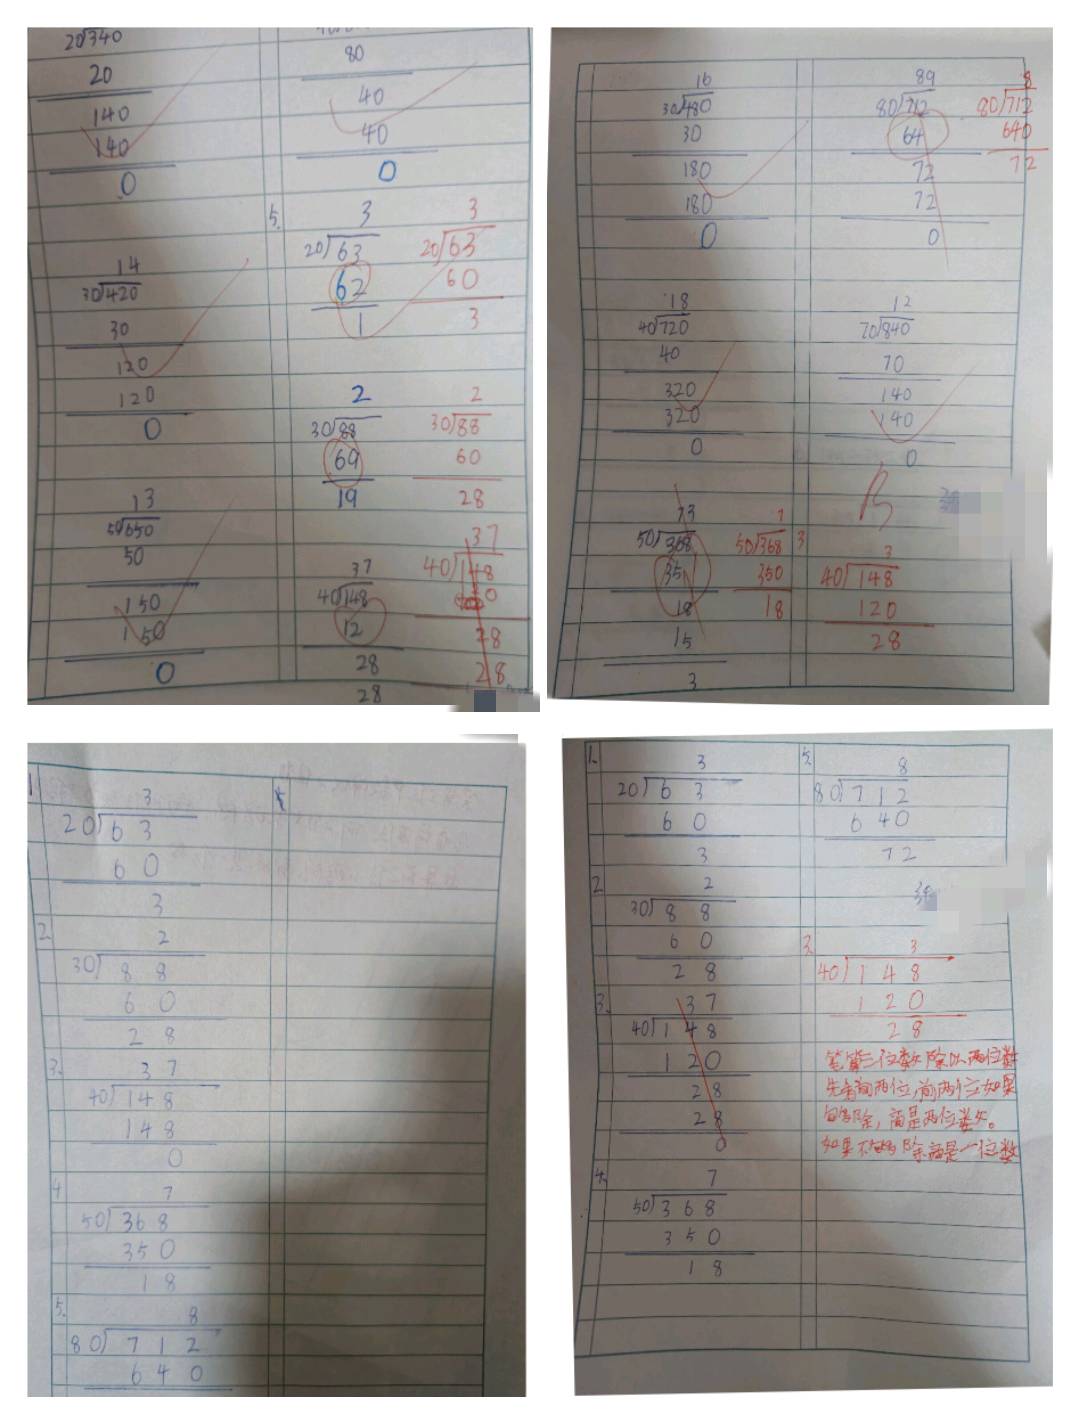 20)340
20
140
140
0
14
30)420
30
120
120
0
13
50)650
50
150
150
0
80
40
40
0
5.
3
20)63
62
1
3
20)63
60
3
2
30)88
69
19
2
30)88
60
28
37
40)148
12
28
28
37
40)148
28
28
16
30)480
30
180
180
0
89
80)712
64
72
72
0
8
80)712
640
72
18
40)720
40
320
320
0
12
70)840
70
140
140
0
73
50)368
351
18
15
3
7
50)368
350
18
B
3
3
40)148
120
28
1
3
20)63
60
3
2.
2
30)88
60
28
3.
37
40)148
148
0
4
7
50)368
350
18
5.
8
80)712
640
1.
3
20)63
60
3
2
2
30)88
60
28
3.
37
40)148
120
28
28
0
4.
7
50)368
350
18
5.
8
80)712
640
72
3.
3
40)148
120
28
笔算三位数除以两位数
先看前两位,前两位如果
够除,商是两位数。
如果不够除商是一位数